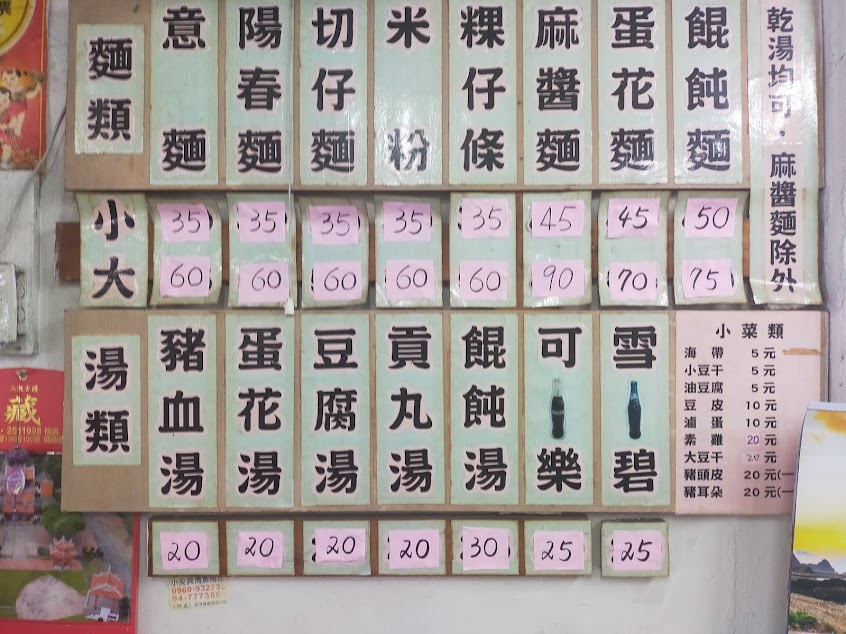 麵類
意麵
陽春麵
切仔麵
米粉
粿仔條
麻醬麵
蛋花麵
餛飩麵
乾湯均可，麻醬麵除外
小 35 35 35 35 35 45 45 50
大 60 60 60 60 60 90 70 75
湯類
豬血湯
蛋花湯
豆腐湯
貢丸湯
餛飩湯
可樂
雪碧
20 20 20 20 30 25 25
小菜類
海帶 5元
小豆干 5元
油豆腐 5元
豆皮 10元
滷蛋 10元
素雞 20元
大豆干 20元
豬頭皮 20元(一
豬耳朵 20元(一
藏
2511998
0960-93273
04-777386